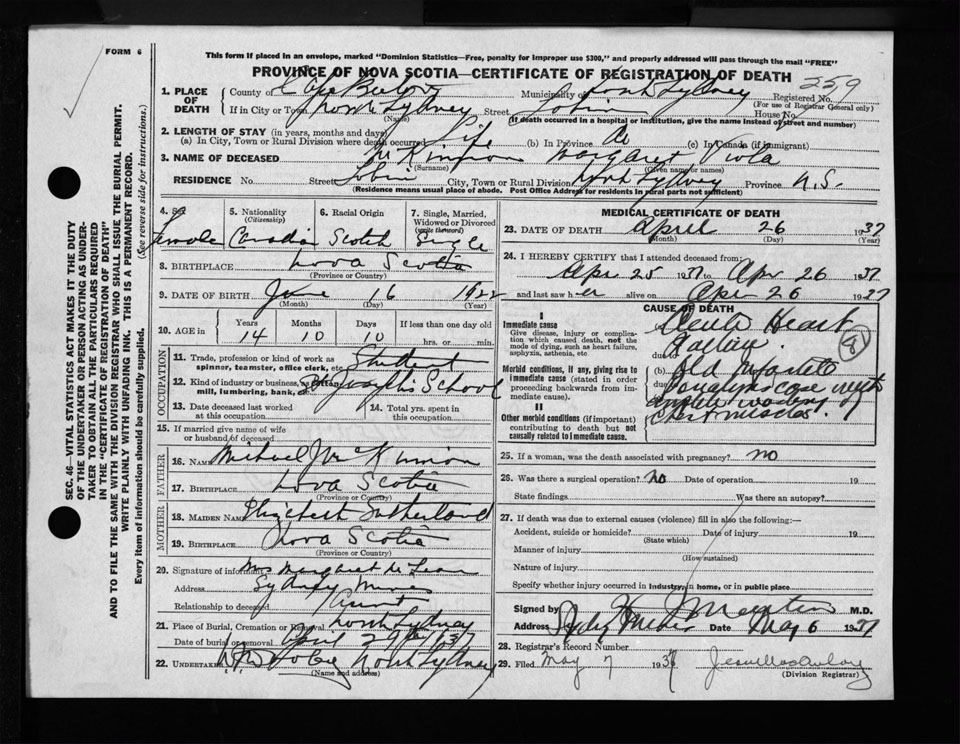 FORM 6
This form if placed in an envelope, marked "Dominion Statistics—Free, penalty for improper use $300," and properly addressed will pass through the mail "FREE"
PROVINCE OF NOVA SCOTIA—CERTIFICATE OF REGISTRATION OF DEATH
259
1. PLACE OF DEATH
County of Cape Breton Municipality of North Sydney Registered No.
(For use of Registrar General only)
If in City or Town North Sydney Street House No.
(Name)
(If death occurred in a hospital or institution, give the name instead of street and number)
2. LENGTH OF STAY (in years, months and days)
(a) In City, Town or Rural Division where death occurred Life (b) In Province do (c) In Canada (if immigrant)
3. NAME OF DECEASED McKinnon Margaret Viola
(Surname) (Given name or names)
RESIDENCE No. Street City, Town or Rural Division North Sydney Province N.S.
(Residence means usual place of abode. Post Office Address for residents in rural parts not sufficient)
4. Sex
Female
5. Nationality
(Citizenship)
Canadian
6. Racial Origin
Scotch
7. Single, Married, Widowed or Divorced
(write the word)
Single
8. BIRTHPLACE Nova Scotia
(Province or Country)
9. DATE OF BIRTH June 16 1922
(Month) (Day) (Year)
10. AGE in
Years Months Days If less than one day old
14 10 10 hrs. or min.
OCCUPATION
11. Trade, profession or kind of work as spinner, teamster, office clerk, etc. Student
12. Kind of industry or business, as cotton mill, lumbering, bank, etc. School
13. Date deceased last worked at this occupation
14. Total yrs. spent in this occupation
15. If married give name of wife or husband of deceased
FATHER
16. NAME Michael J McKinnon
17. BIRTHPLACE Nova Scotia
(Province or Country)
MOTHER
18. MAIDEN NAME Elizabeth Sutherland
19. BIRTHPLACE Nova Scotia
(Province or Country)
20. Signature of informant Mrs Margaret McLean
Address Sydney Mines
Relationship to deceased
21. Place of Burial, Cremation or Removal North Sydney
Date of burial or removal April 27th 1937
22. Undertaker North Sydney
(Name and address)
MEDICAL CERTIFICATE OF DEATH
23. DATE OF DEATH April 26 1937
(Month) (Day) (Year)
24. I HEREBY CERTIFY that I attended deceased from:
Apr 25 1937 to Apr 26 1937
and last saw her alive on Apr 26 1937
CAUSE OF DEATH
I
Immediate cause
Give disease, injury or complication which caused death, not the mode of dying, such as heart failure, asphyxia, asthenia, etc
Morbid conditions, if any, giving rise to immediate cause (stated in order proceeding backwards from immediate).
II
Other morbid conditions (if important) contributing to death but not causally related to immediate cause.
(a) Acute Heart
due to Failure
(b) Old Infantile
paralysis case with
complete wasting of
chest muscles
81
25. If a woman, was the death associated with pregnancy? no
26. Was there a surgical operation? No Date of operation 19
State findings Was there an autopsy?
27. If death was due to external causes (violence) fill in also the following:—
Accident, suicide or homicide? Date of injury 19
(State which)
Manner of injury
(How sustained)
Nature of injury
Specify whether injury occurred in industry, in home, or in public place
Signed by M.D.
Address Sydney Mines Date May 6 1937
28. Registrar's Record Number
29. Filed May 7 1937
(Division Registrar)
SEC. 46—VITAL STATISTICS ACT MAKES IT THE DUTY
OF THE UNDERTAKER OR PERSON ACTING AS UNDERTAKER TO OBTAIN ALL THE PARTICULARS REQUIRED
IN THE "CERTIFICATE OF REGISTRATION OF DEATH"
AND TO FILE THE SAME WITH THE DIVISION REGISTRAR WHO SHALL ISSUE THE BURIAL PERMIT.
WRITE PLAINLY WITH UNFADING INK. THIS IS A PERMANENT RECORD.
Every item of information should be carefully supplied. (See reverse side for instructions.)